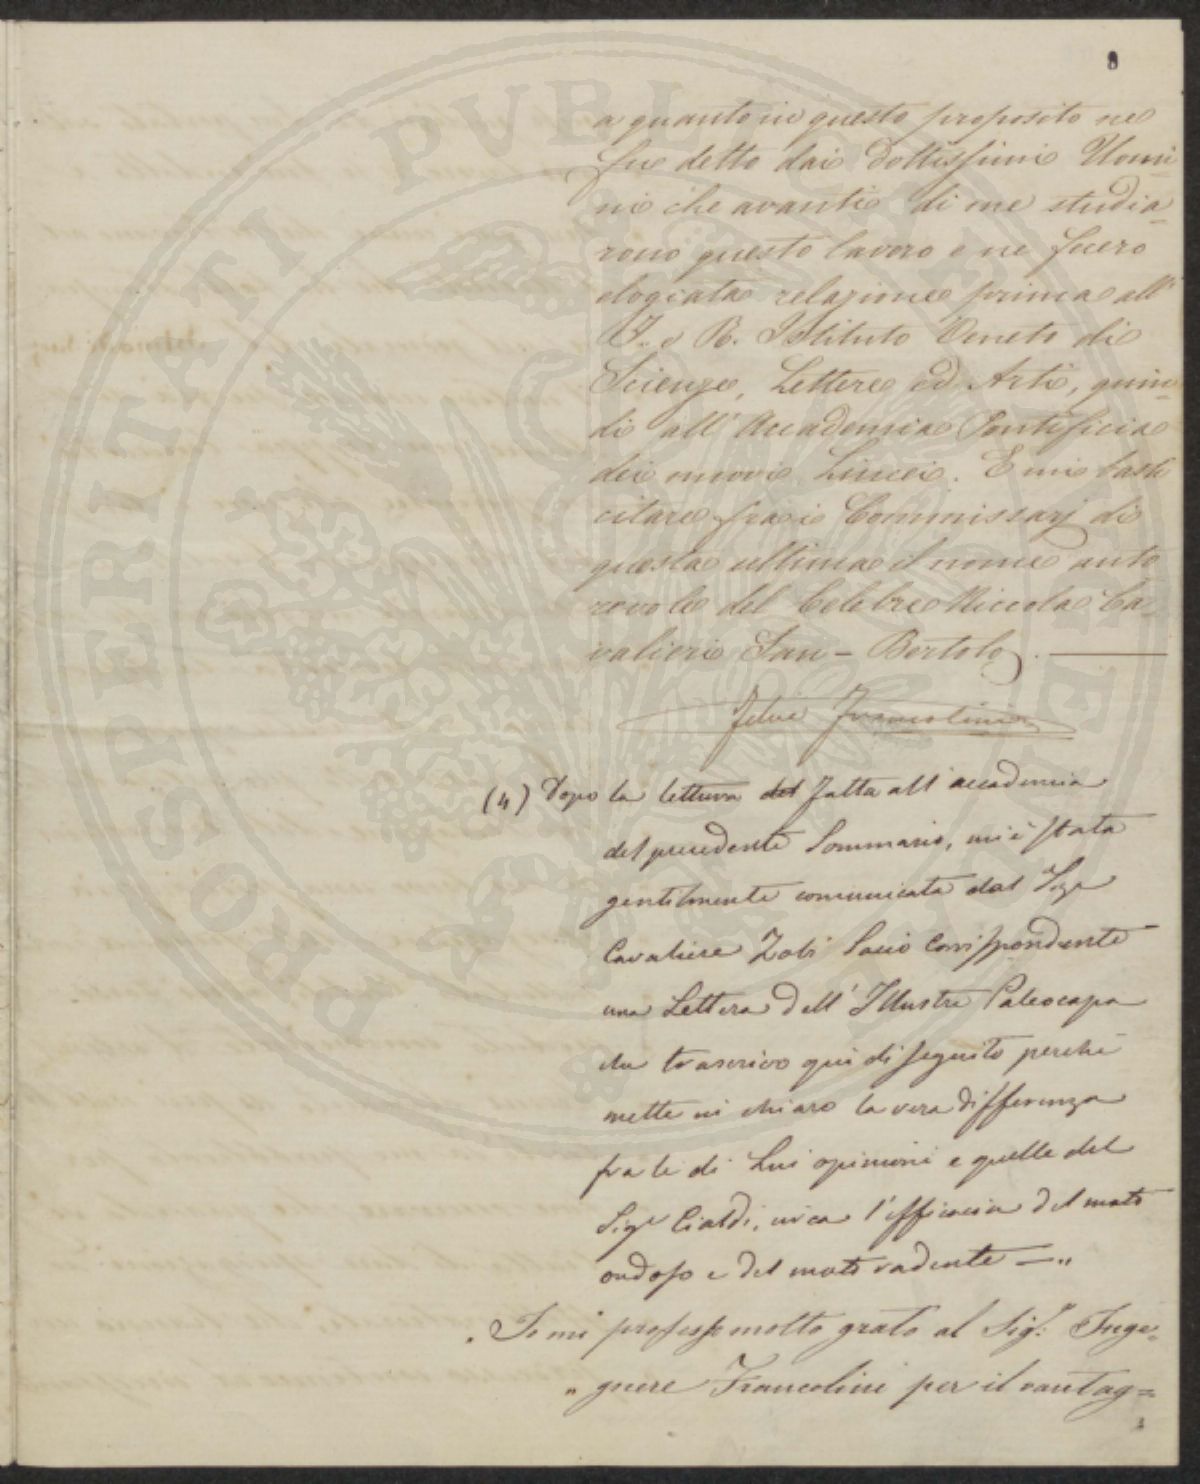 8
a quanto in questo proposito ne
fu detto dai dottissimi Uomi-
ni che avanti di me studia-
rono questo lavoro e ne fecero
elogiata relazione prima all'
I. e R. Istituto Veneto di
Scienze, Lettere ed Arti, quin-
di all' Accademia Pontificia
dei nuovi Lincei. E mi basti
citare fra i Commissarj di
questa ultima il nome auto
revole del Celebre Niccola Ca-
valieri San-Bertolo. —
Felice Francolini
(4) Dopo la lettura del fatta all' accademia
del precedente Sommario, mi è stata
gentilmente comunicata dal Sige
Cavaliere Zobi Socio Corrispondente
una Lettera dell' Illustre Paleocapa
che trascrivo qui di seguito perchè
mette in chiaro la vera differenza
fra le di Lui opinioni e quelle del
Sige Cialdi, circa l'efficacia del moto
ondoso e del moto radente —„
„ Io mi professo molto grato al Sigr. Inge-
„ gnere Francolini per il vantag=
3
PROSPERITATI PVBLICAE